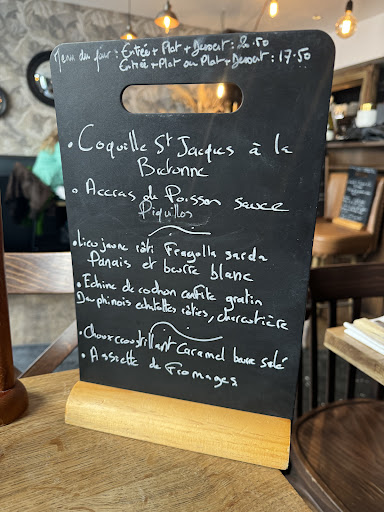 Menu du jour : Entrée + Plat + Dessert : 20.50
Entrée + Plat ou Plat + Dessert : 17.50
• Coquille St Jacques à la
Bretonne
• Accras de Poisson sauce
Piquillos
• Lieu jaune rôti Fregolla sarda
Panais et beurre blanc
• Echine de cochon confite gratin
Dauphinois echalottes rôties, charcutière
• Choux craustillant Caramel beurre salé
• Assiette de Fromages